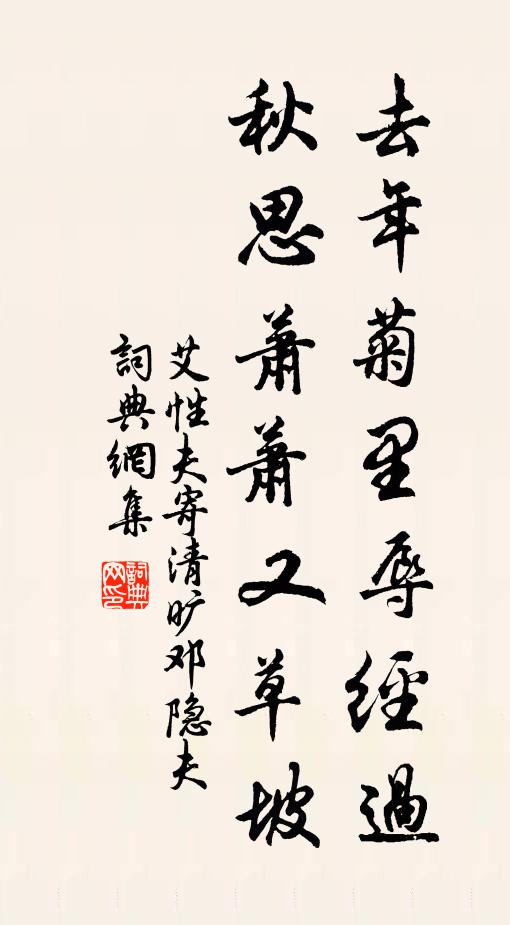 去年菊里辱經過
秋思蕭蕭又草坡
艾性夫寄清旷邓隐夫
詞典網集
詞典网印